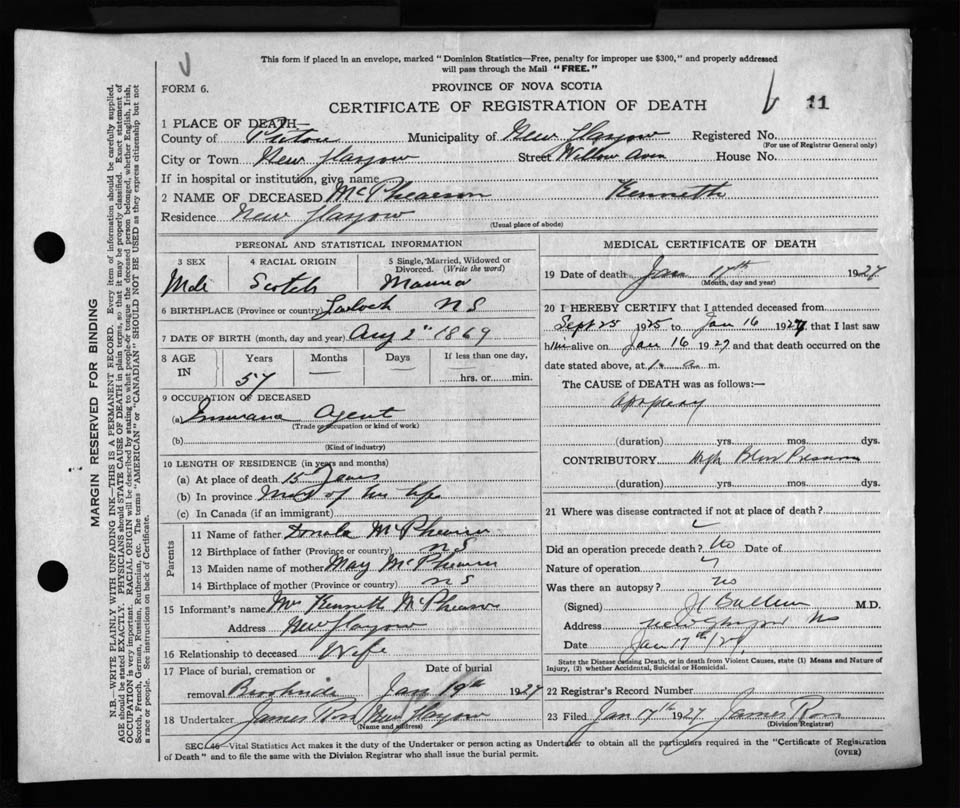 This form if placed in an envelope, marked "Dominion Statistics—Free, penalty for improper use $300," and properly addressed
will pass through the Mail "FREE."
FORM 6.
PROVINCE OF NOVA SCOTIA
CERTIFICATE OF REGISTRATION OF DEATH
31
1 PLACE OF DEATH—
County of Pictou Municipality of New Glasgow Registered No.
(For use of Registrar General only)
City or Town New Glasgow Street Willow Aven House No.
If in hospital or institution, give name
2 NAME OF DECEASED McPhearson Kenneth
Residence New Glasgow
(Usual place of abode)
PERSONAL AND STATISTICAL INFORMATION
3 SEX Male
4 RACIAL ORIGIN Scotch
5 Single, Married, Widowed or Divorced. (Write the word) Married
6 BIRTHPLACE (Province or country) N S
7 DATE OF BIRTH (month, day and year) Aug 2" 1869
8 AGE IN Years Months Days If less than one day,
57 hrs. or min.
9 OCCUPATION OF DECEASED
(a) Insurance Agent
(Trade occupation or kind of work)
(b)
(Kind of industry)
10 LENGTH OF RESIDENCE (in years and months)
(a) At place of death 15 Years
(b) In province Most of his life
(c) In Canada (if an immigrant)
Parents
11 Name of father Donald McPhearson
12 Birthplace of father (Province or country) N S
13 Maiden name of mother May McPhearson
14 Birthplace of mother (Province or country) N S
15 Informant's name Mrs Kenneth McPhearson
Address New Glasgow
16 Relationship to deceased Wife
17 Place of burial, cremation or Date of burial
removal Brookside Jan 19th 1927
18 Undertaker James Ross New Glasgow
(Name and address)
MEDICAL CERTIFICATE OF DEATH
19 Date of death Jan 17th 1927
(Month, day and year)
20 I HEREBY CERTIFY that I attended deceased from
Sept 25 1925 to Jan 16 1927 that I last saw
him alive on Jan 16 1927 and that death occurred on the
date stated above, at a m.
The CAUSE OF DEATH was as follows:—
apoplexy
(duration) yrs. mos. dys.
CONTRIBUTORY High Blood Pressure
(duration) yrs. mos. dys.
21 Where was disease contracted if not at place of death?
Did an operation precede death? No Date of
Nature of operation
Was there an autopsy? no
(Signed) M.D.
Address New Glasgow NS
Date Jan 17th/27
State the Disease causing Death, or in death from Violent Causes, state (1) Means and Nature of
Injury, (2) whether Accidental, Suicidal or Homicidal.
22 Registrar's Record Number
23 Filed Jan 17th 1927 James Ross
(Division Registrar)
SEC. 46—Vital Statistics Act makes it the duty of the Undertaker or person acting as Undertaker to obtain all the particulars required in the "Certificate of Registration
of Death" and to file the same with the Division Registrar who shall issue the burial permit.
(OVER)
MARGIN RESERVED FOR BINDING
N.B.—WRITE PLAINLY WITH UNFADING INK—THIS IS A PERMANENT RECORD. Every item of information should be carefully supplied.
AGE should be stated EXACTLY. PHYSICIANS should STATE CAUSE OF DEATH in plain terms, so that it may be properly classified. Exact statement of
OCCUPATION is very important. RACIAL ORIGIN will be described by stating to what people or tongue the deceased person belonged, whether English, Irish,
Scotch, French, German, Russian, Ruthenian, etc. The terms "AMERICAN" or "CANADIAN" SHOULD NOT BE USED as they express citizenship but not
a race or people. See instructions on back of Certificate.